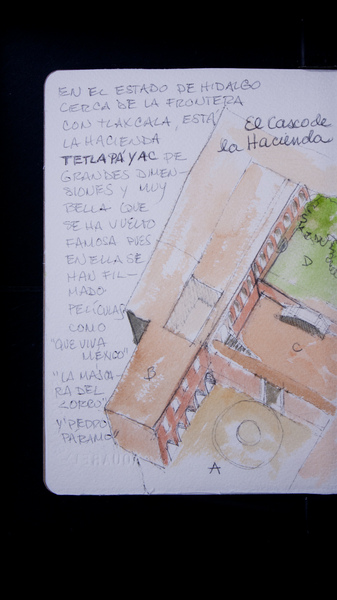 EN EL ESTADO DE HIDALGO
CERCA DE LA FRONTERA
CON TLAXCALA, ESTÁ
LA HACIENDA
TETLAPÁYAC DE
GRANDES DIMEN-
SIONES Y MUY
BELLA QUE
SE HA VUELTO
FAMOSA PUES
EN ELLA SE
HAN FIL-
MADO
PELÍCULAS
COMO
"QUE VIVA
MÉXICO"
"LA MASCA-
RA DEL
ZORRO"
Y "PEDRO
PÁRAMO
El Casco de
la Hacienda
D
C
B
A